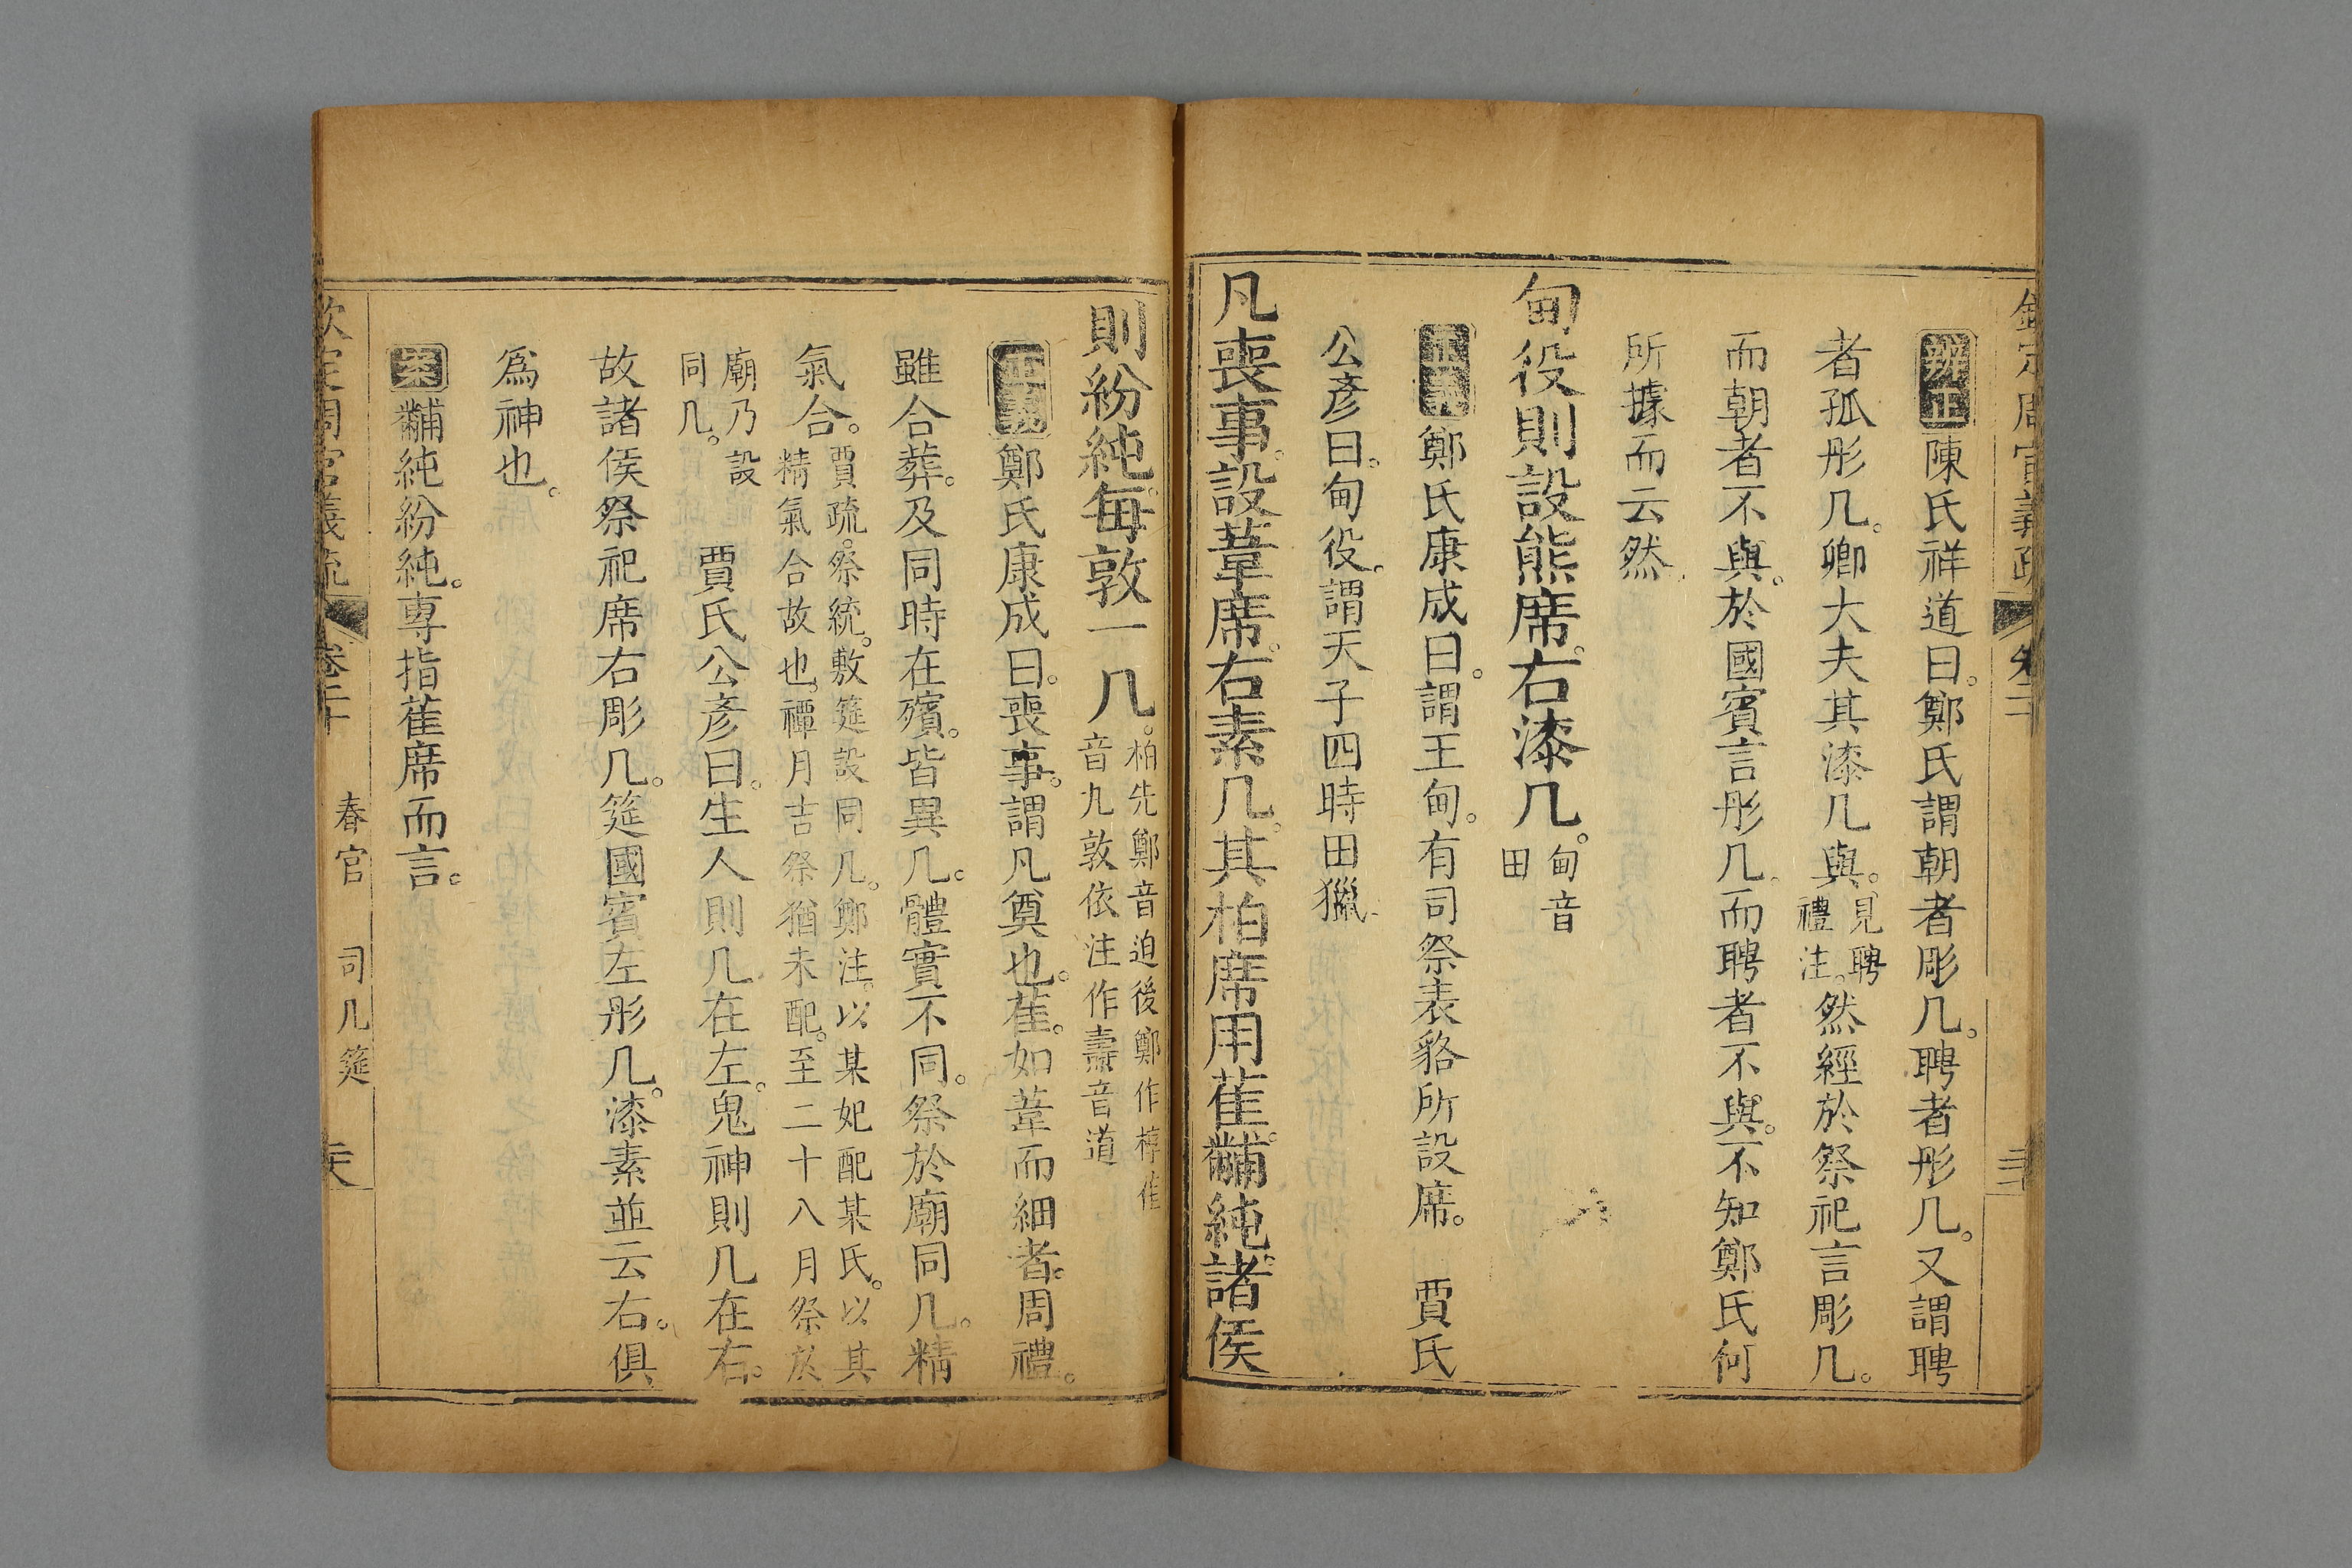 欽定周官義疏 卷二十
辨正 陳氏祥道曰。鄭氏謂朝者彫几。聘者彤几。又謂聘
者孤彤几。卿大夫其漆几與。見聘禮注。然經於祭祀言彫几。
而朝者不與。於國賓言彤几。而聘者不與。不知鄭氏何
所據而云然。
甸役則設熊席。右漆几。甸音田
正義 鄭氏康成曰。謂王甸。有司祭表貉所設席。 賈氏
公彥曰。甸役。謂天子四時田獵。
凡喪事。設葦席。右素几。其柏席用萑黼純。諸侯
則紛純。每敦一几。柏先鄭音迫後鄭作椁萑音九敦依注作燾音道
正義 鄭氏康成曰。喪事。謂凡奠也。萑。如葦而細者。周禮。
雖合葬。及同時在殯。皆異几。體實不同。祭於廟同几。精
氣合。賈疏。祭統。敷筵設同几。鄭注。以某妃配某氏。以其精氣合故也。禫月吉祭猶未配。至二十八月祭於
廟乃設同几。 賈氏公彥曰。生人則几在左。鬼神則几在右。
故諸侯祭祀席右彫几。筵國賓左彤几。漆素並云右。俱
爲神也。
案 黼純紛純。專指萑席而言。
欽定周官義疏 卷二十 春官 司几筵